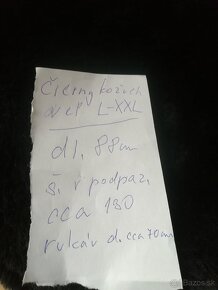 Čierny kožuch
veľ L-XXL
dĺ. 88cm
š. v podpaz.
cca 130
rukáv d. cca 70cm
Bazoš.sk